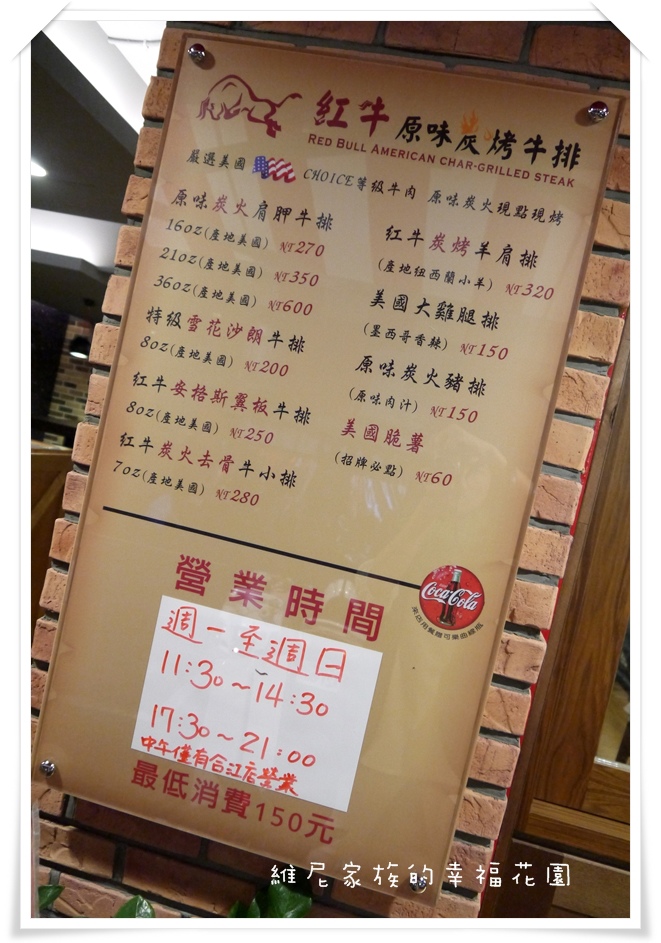 紅牛 原味炭烤牛排
RED BULL AMERICAN CHAR-GRILLED STEAK
嚴選美國 CHOICE等級牛肉 原味炭火現點現烤
原味炭火肩胛牛排
16oz(產地美國) NT270
21oz(產地美國) NT350
36oz(產地美國) NT600
特級雪花沙朗牛排
8oz(產地美國) NT200
紅牛安格斯翼板牛排
8oz(產地美國) NT250
紅牛炭火去骨牛小排
7oz(產地美國) NT280
紅牛炭烤羊肩排
(產地紐西蘭小羊) NT320
美國大雞腿排
(墨西哥香辣) NT150
原味炭火豬排
(原味肉汁) NT150
美國脆薯
(招牌必點) NT60
Coca-Cola
來店用餐贈可樂曲線瓶
營業時間
週一至週日
11:30~14:30
17:30~21:00
中午僅有合江店營業
最低消費150元
維尼家族的幸福花園